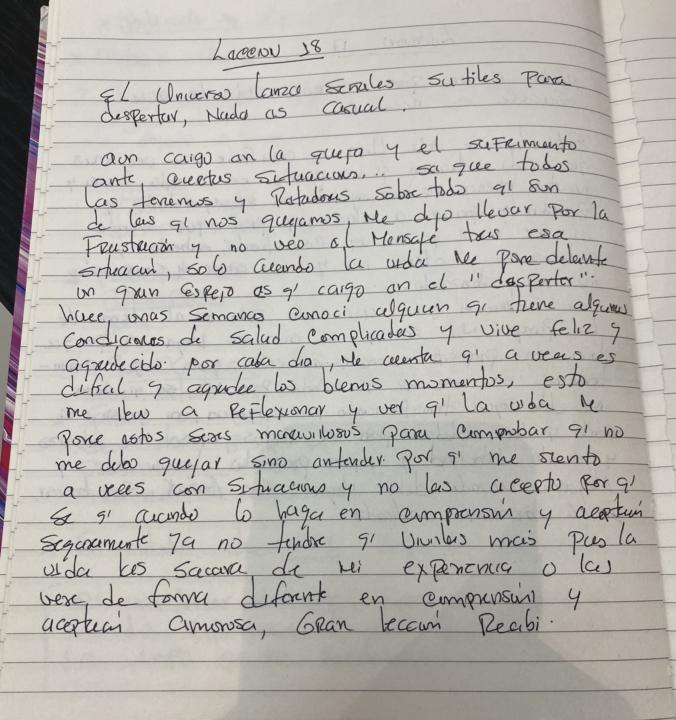 Leccion 18
El Universo lanza señales sutiles para
despertar, Nada es casual.
aun caigo en la queja y el sufrimiento
ante ciertas situaciones... se que todos
las tenemos y sobre todo q' son
de las q' nos quejamos, Me dejo llevar por la
Frustración y no veo el Mensaje tras esa
situación, solo cuando la vida Me pone delante
un gran Espejo es q' caigo en el "despertar".
hace unas semanas conoci alguien q' tiene algunas
Condiciones de salud complicadas y vive feliz y
agradecido por cada dia, Me cuenta q' a veces es
dificil y agradece los buenos momentos, esto
me lleva a Reflexionar y ver q' la vida Me
pone estos seres maravillosos para comprobar q' no
me debo quejar sino entender por q' me siento
a veces con situaciones y no las acepto por q'
se q' cuando lo haga en comprensión y aceptación
seguramente ya no tendre q' vivirlas mas pues la
vida las sacara de mi experiencia o las
vere de forma diferente en comprensión y
aceptación amorosa, Gran lección Recibi.